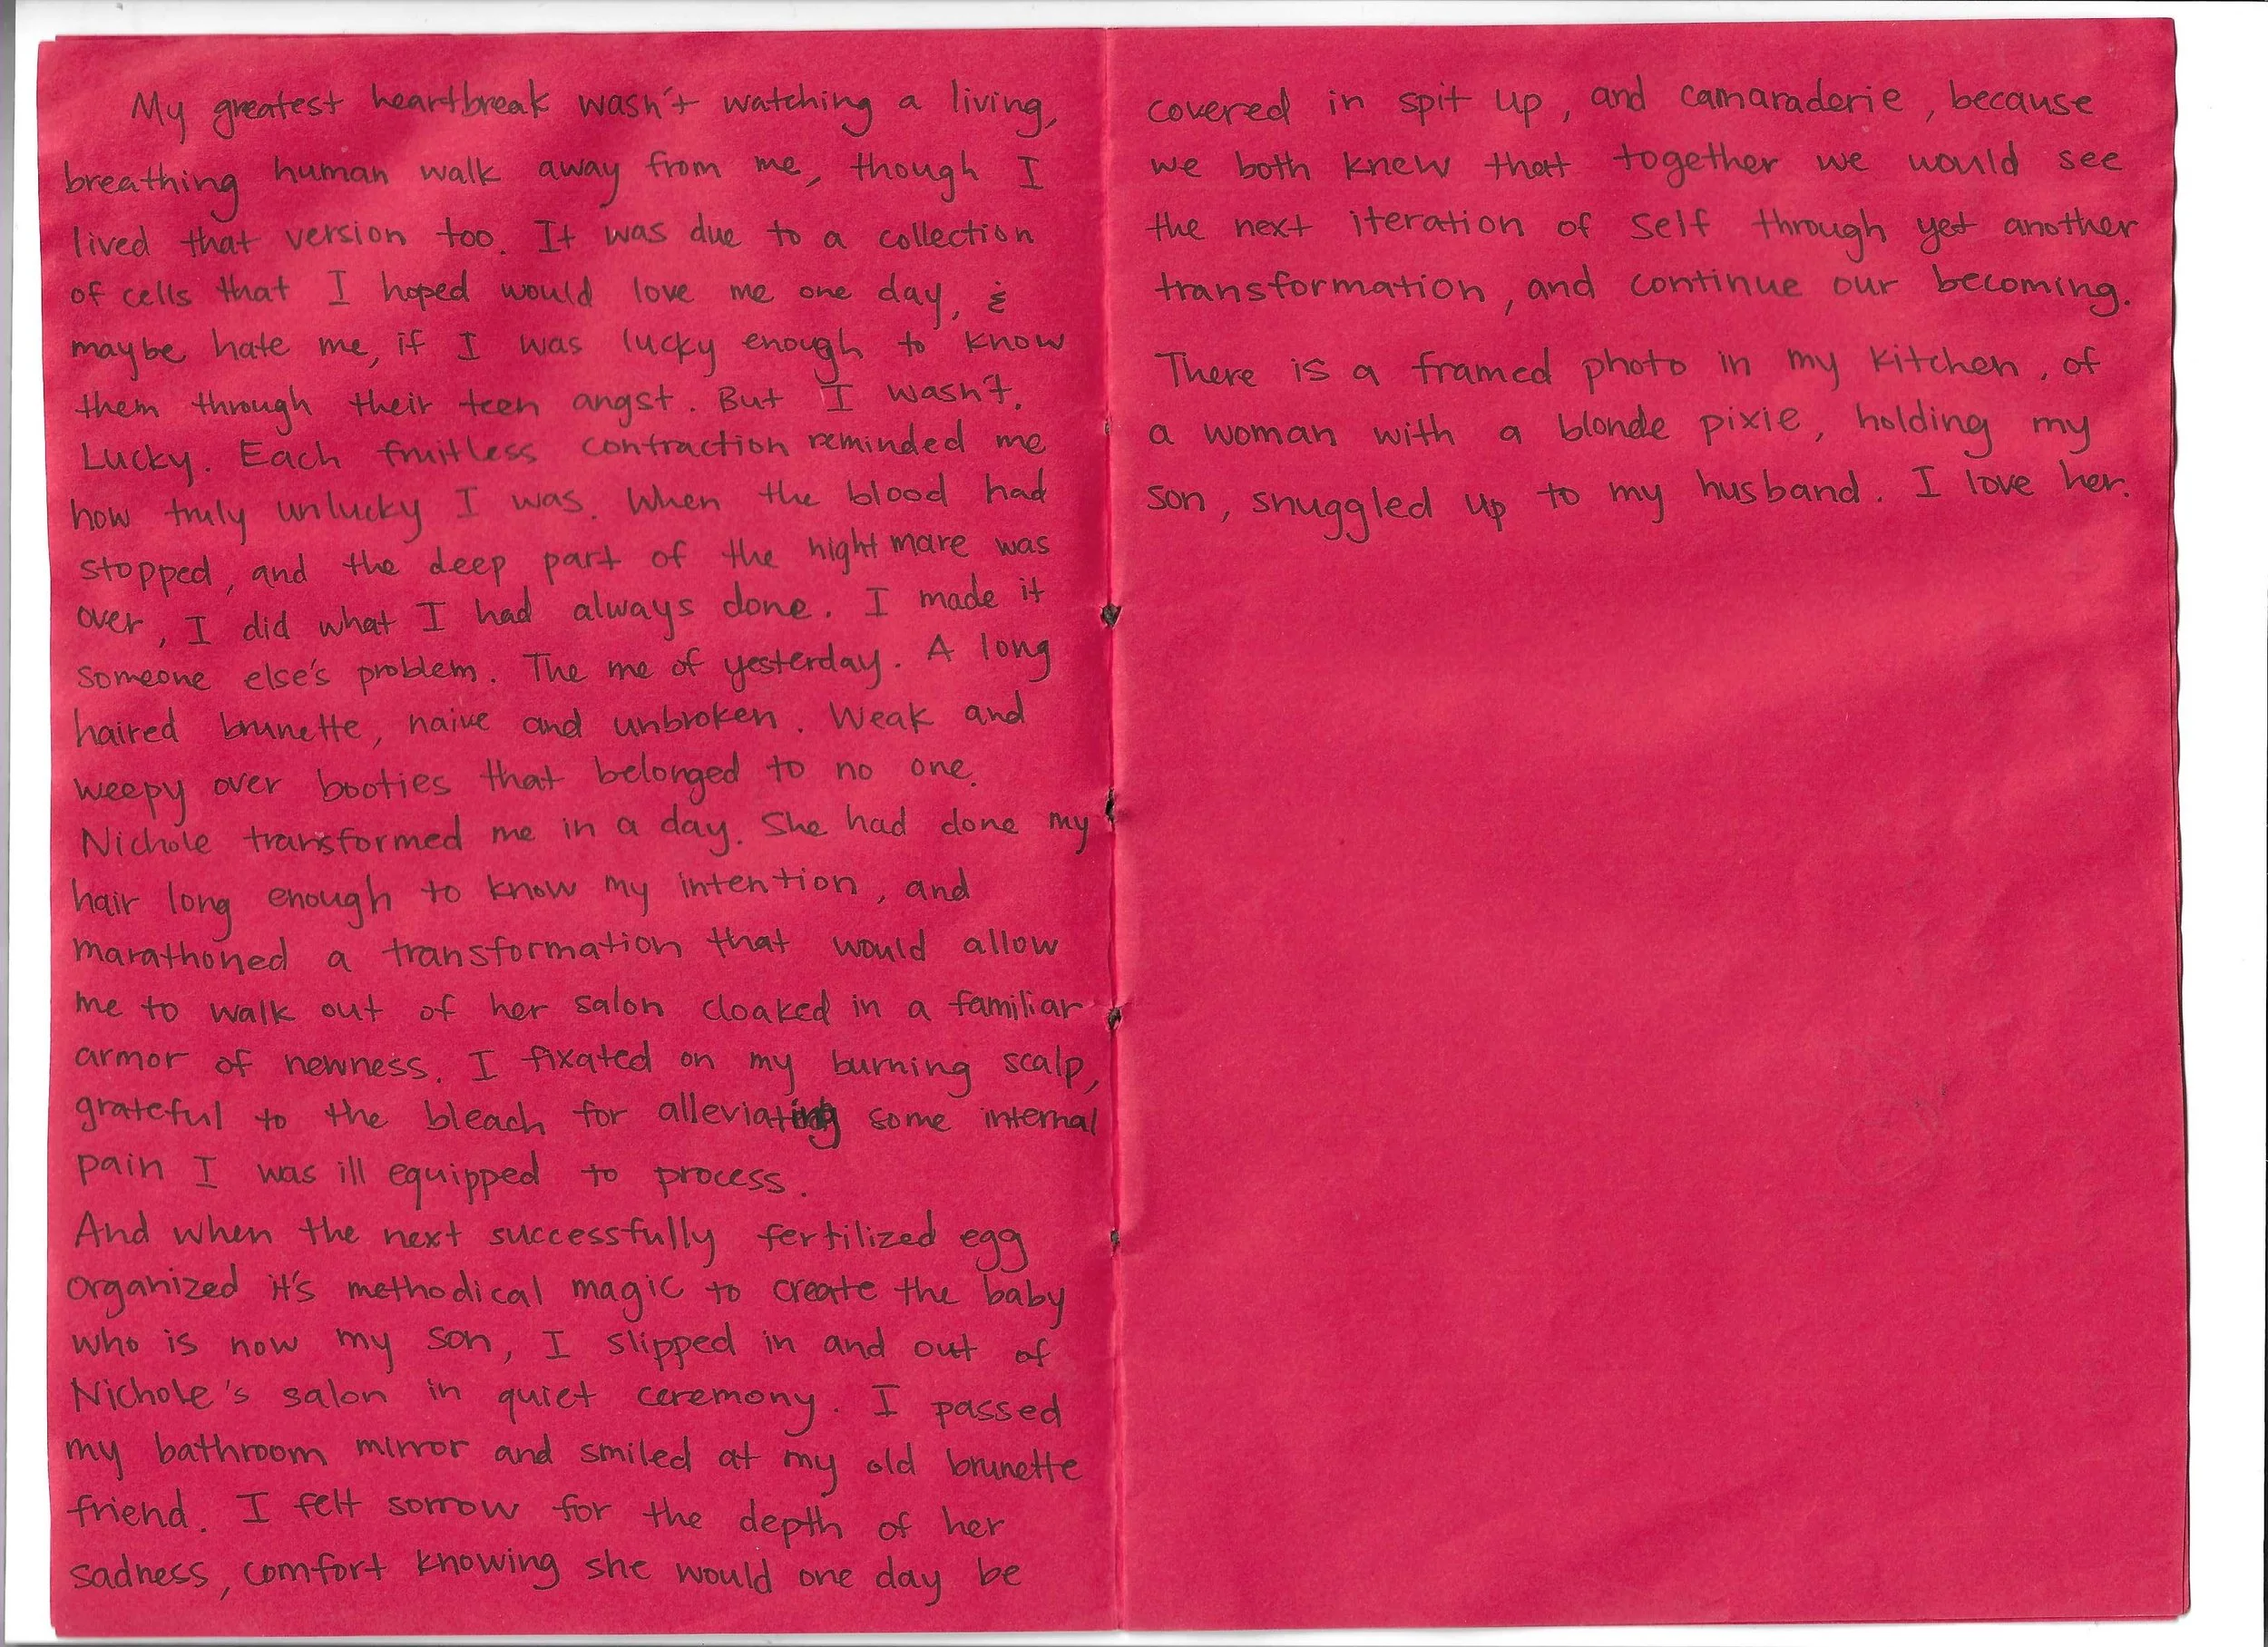 My greatest heartbreak wasn't watching a living,
breathing human walk away from me, though I
lived that version too. It was due to a collection
of cells that I hoped would love me one day, &
maybe hate me, if I was lucky enough to know
them through their teen angst. But I wasn't.
Lucky. Each fruitless contraction reminded me
how truly unlucky I was. When the blood had
stopped, and the deep part of the nightmare was
over, I did what I had always done. I made it
someone else's problem. The me of yesterday. A long
haired brunette, naive and unbroken. Weak and
weepy over booties that belonged to no one.
Nichole transformed me in a day. She had done my
hair long enough to know my intention, and
marathoned a transformation that would allow
me to walk out of her salon cloaked in a familiar
armor of newness. I fixated on my burning scalp,
grateful to the bleach for alleviating some internal
pain I was ill equipped to process.
And when the next successfully fertilized egg
organized it's methodical magic to create the baby
who is now my son, I slipped in and out of
Nichole's salon in quiet ceremony. I passed
my bathroom mirror and smiled at my old brunette
friend. I felt sorrow for the depth of her
sadness, comfort knowing she would one day be
covered in spit up, and camaraderie, because
we both knew that together we would see
the next iteration of self through yet another
transformation, and continue our becoming.
There is a framed photo in my kitchen, of
a woman with a blonde pixie, holding my
son, snuggled up to my husband. I love her.